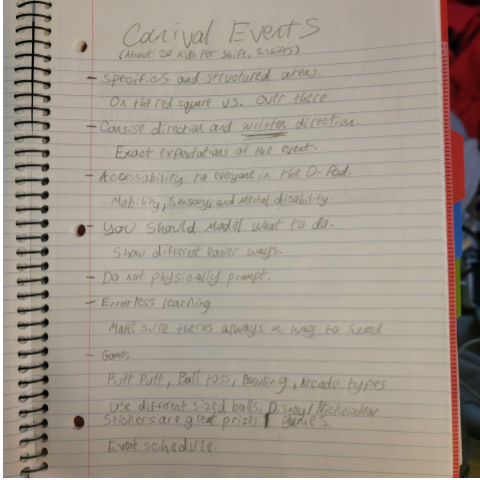 Carnival Events
(About 20 kids per shift, 2 shifts)
- Specifics and structured areas.
On the red square vs. over there
- Consise direction and written direction.
Exact expectations of the event.
- Accessability to everyone in the D. Pod.
Mobility, Sensory, and Mental disability.
- You should model what to do.
Show different easier ways.
- Do not physically prompt.
- Errorless learning
Make sure theres always a way to
- Games
Putt Putt, Ball toss, Bowling, Arcade types
Use different sized balls. Disney/Nickelodean
Stickers are great prizes! Games.
Event schedule.